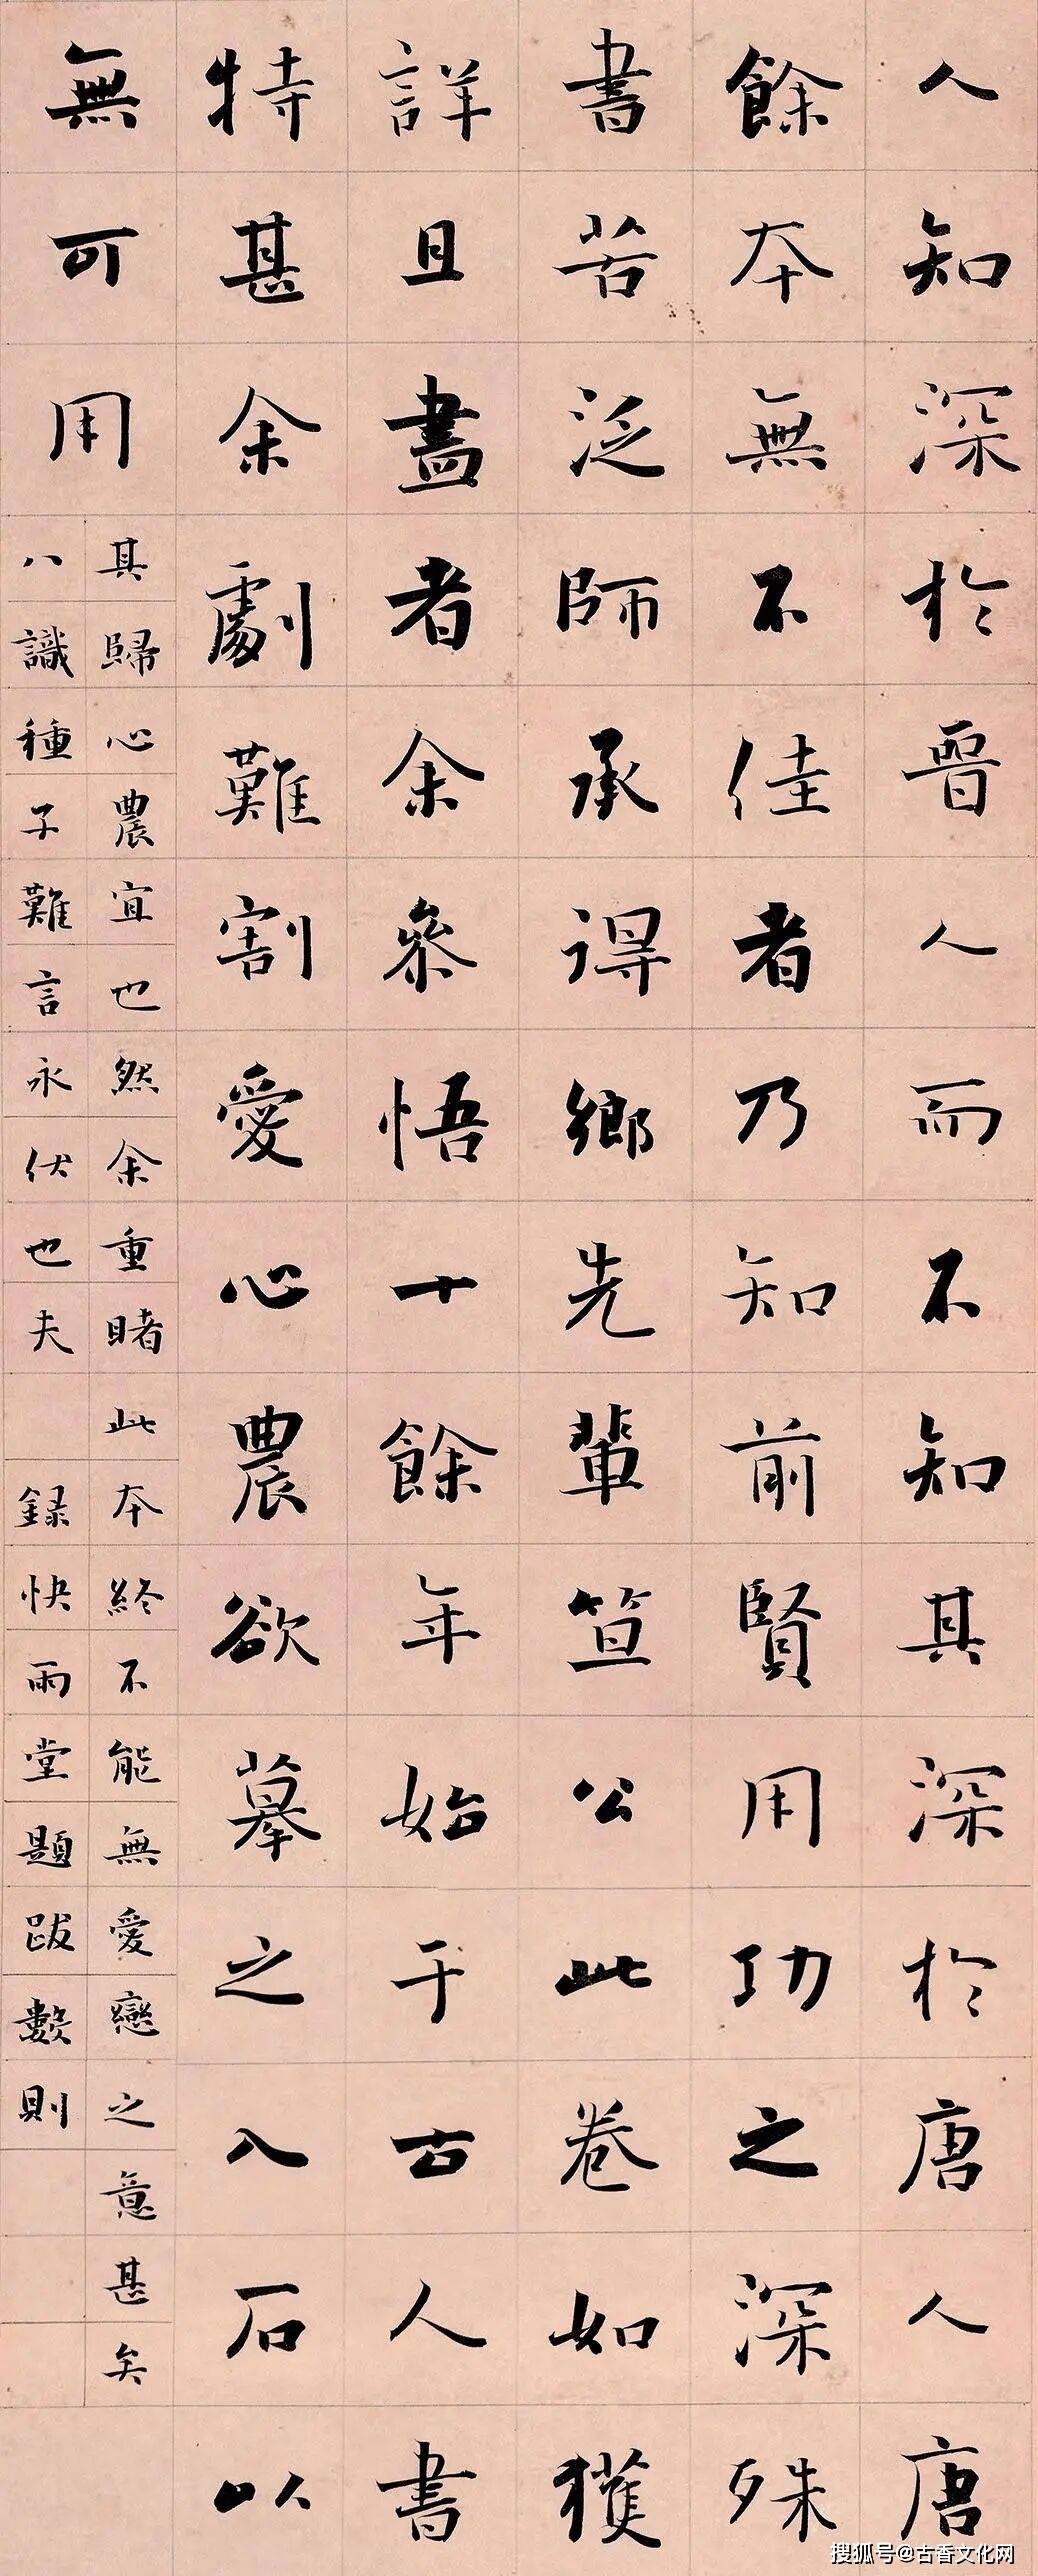 人知深於晉人而不知其深於唐人唐
餘本無不佳者乃知前賢用功之深殊
書苦泛師承得鄉先輩笪公此卷如獲
詳且盡者余參悟十餘年始于古人書
特甚余劇難割愛心農欲摹之入石以
無可用
其歸心農宜也然余重睹此本終不能無愛戀之意甚矣
八識種子難言永伏也夫 録快雨堂題跋數則
搜狐号@古香文化网